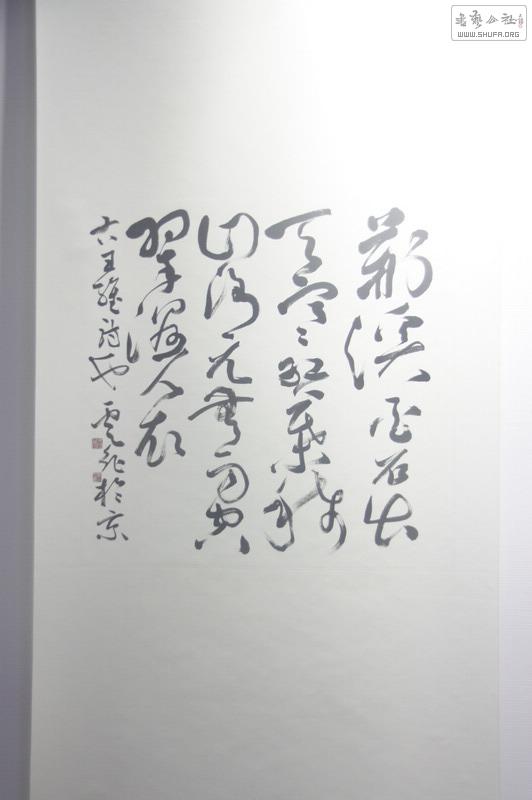 書藝公社
WWW.SHUFA.ORG
荊溪白石出
天寒紅葉稀
山路元無雨空
翠濕人衣
王維詩也 於京